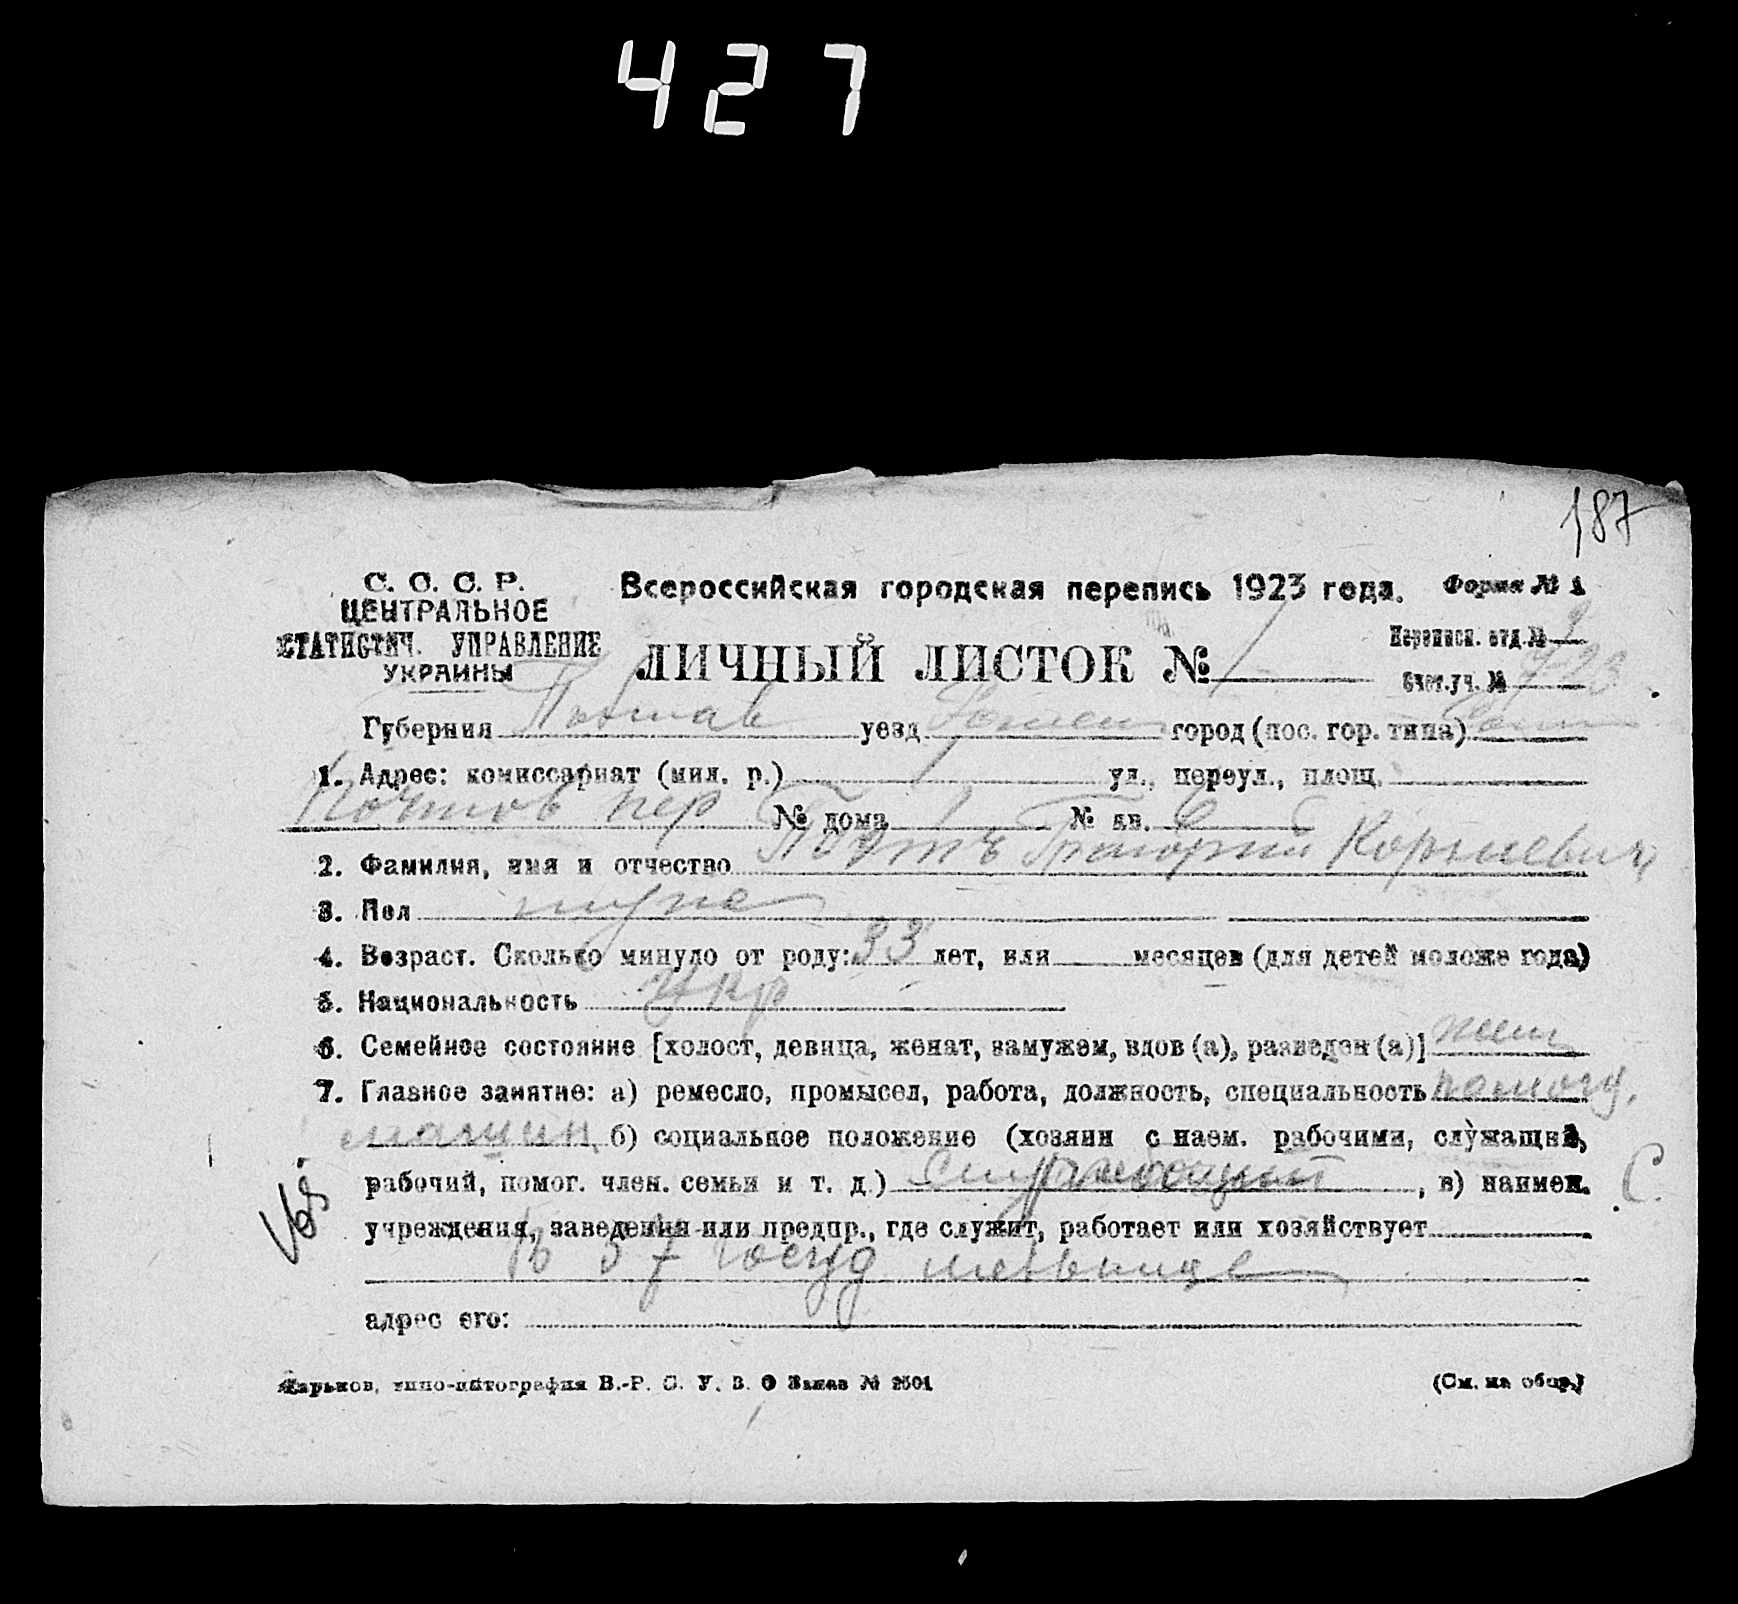 427
187
С. С. С. Р.
ЦЕНТРАЛЬНОЕ
СТАТИСТИЧ. УПРАВЛЕНИЕ
УКРАИНЫ
Всероссийская городская перепись 1923 года. Форма № 1
ЛИЧНЫЙ ЛИСТОК № 1
Переписн. отд. №
Счет. уч. № 723
Губерния Полтав уезд Ромен город (пос. гор. типа) Ромн
1. Адрес: комиссариат (мил. р.) ул., переул., площ.
Почтов пер № дома 1 № кв. 6
2. Фамилия, имя и отчество Григорий Корниевич
3. Пол муж
4. Возраст. Сколько минуло от роду: 33 лет, или месяцев (для детей моложе года)
5. Национальность Укр
6. Семейное состояние [холост, девица, женат, замужем, вдов (а), разведен (а)] жен
7. Главное занятие: а) ремесло, промысел, работа, должность, специальность помощ.
машин б) социальное положение (хозяин с наем. рабочими, служащий,
рабочий, помог. член. семьи и т. д.) , в) наимен. С.
учреждения, заведения или предпр., где служит, работает или хозяйствует
В 57 Госуд мельнице
адрес его:
Харьков, типо-литография В.-Р. С. У. В. О Заказ № 2501
(См. на обор.)